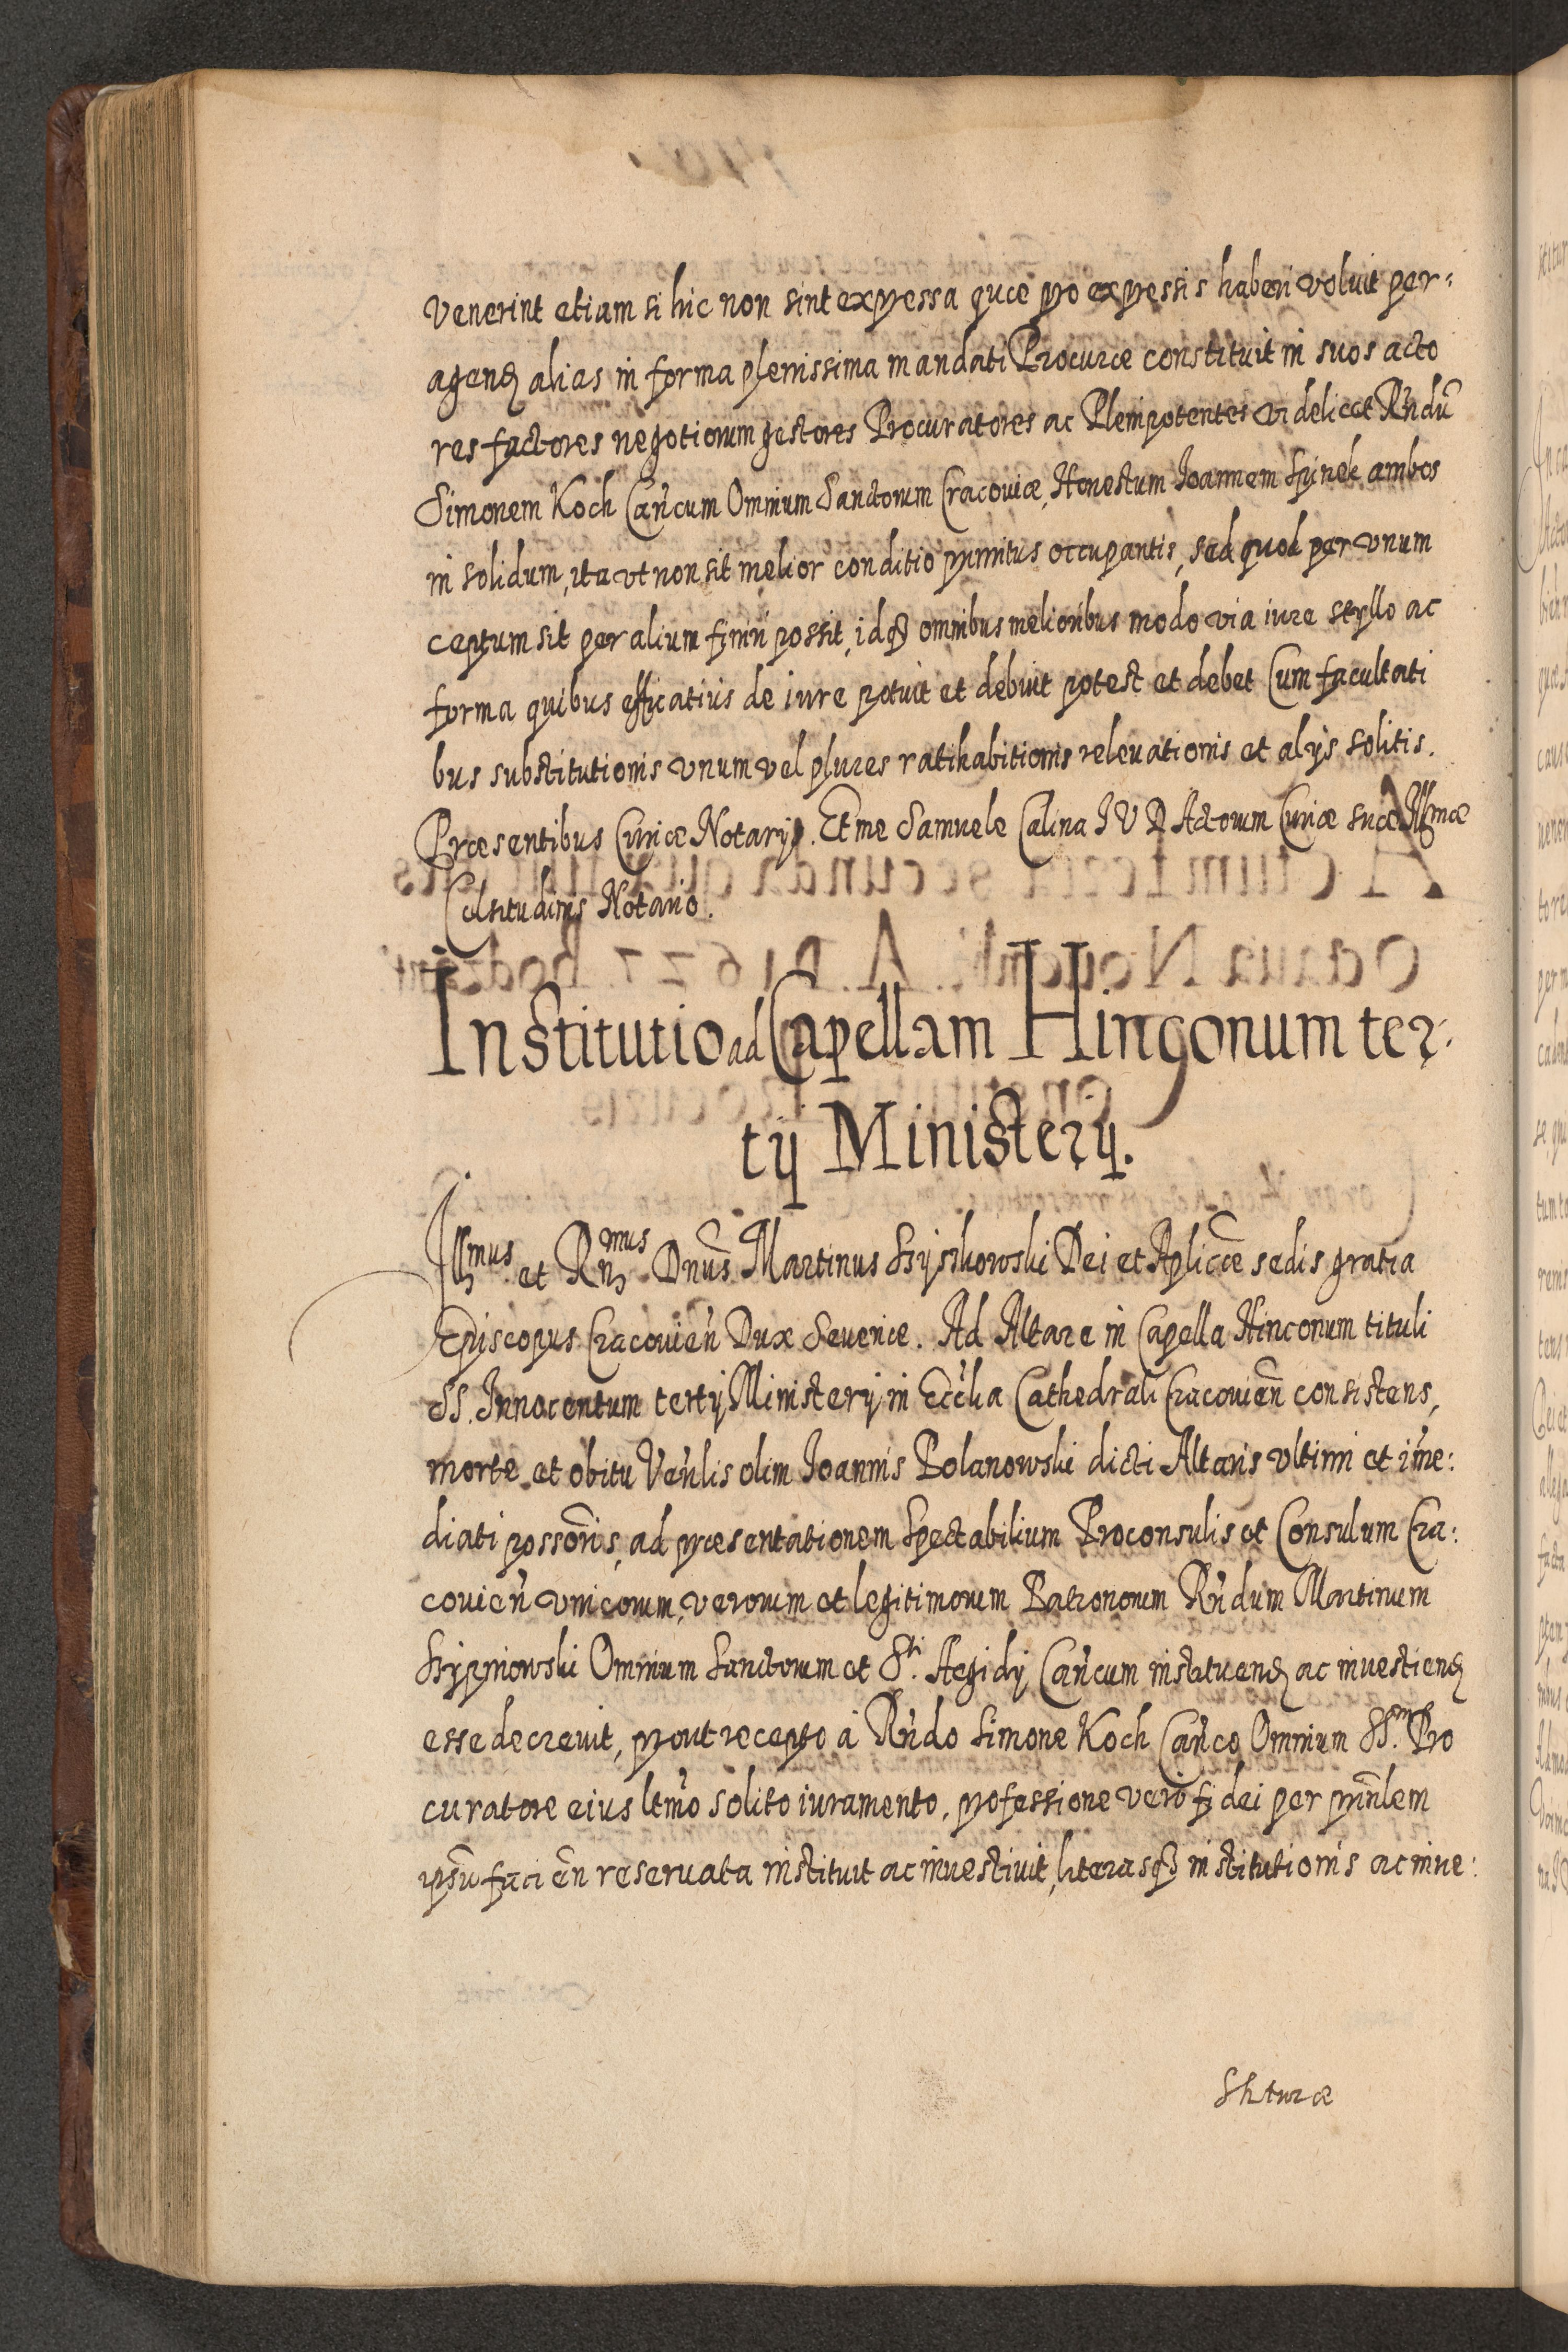 venerint etiam si hic non sint expressa quæ pro expressis haberi voluit per-
agend alias in forma plenissima mandati Procuræ constituit in suos acto
res factores negotiorum gestores Procuratores ac Plenipotentes videlicet Rndũ
Simonem Koch Cancum Omnium Sanctorum Cracoviæ, Honestum Joannem ambos
in solidum, ita vt non sit melior conditio primitus occupantis, sed quod per vnum
ceptum sit per alium finiri possit, idq omnibus melioribus modo via iure styllo ac
forma quibus efficatius de iure potuit et debuit potest et debet Cum facultati
bus substitutionis vnum vel plures ratihabitionis releuationis et alijs solitis.
Præsentibus Curiæ Notarijs. Et me Samuele Calina J V D Actorum Curiæ suæ Illmæ
Celsitudinis Notario.
Institutio ad Capellam Hinconum ter-
tij Ministerij.
Illmus et Rnmus Dnus Martinus Szyszkowski Dei et Aplicæ sedis gratia
Episcopus Cracovien Dux Seueriæ. Ad Altare in Capella Hinconum tituli
SS. Innocentum tertij Ministerij in Ecclia Cathedrali Cracovien consistens,
morte et obitu Venlis olim Joannis Bolanowski dicti Altaris vltimi et ime:
diati possoris, ad præsentationem Spectabilium Proconsulis et Consulum Cra:
covien vnicorum, verorum et legitimorum Patronorum Rndum Martinum
Szypniowski Omnium Sanctorum et Sti. Aegidij Cancum instituend ac inuestiend
esse decreuit, prout recepto à Rndo Simone Koch Canco Omnium SSm. Pro
curatore eius ltmo solito iuramento, professione vero fidei per prinlem
ipsũ facien reseruata instituit ac inuestiuit, literasq institutionis ac inue:
stituræ